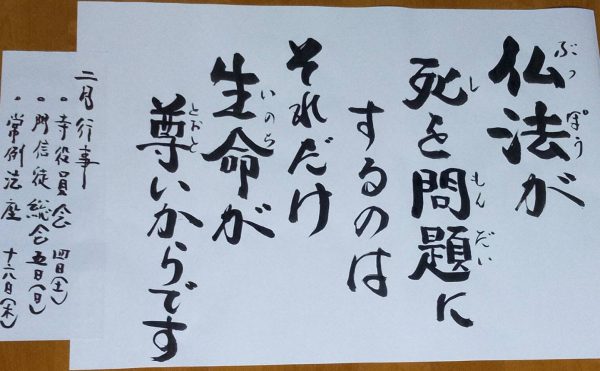 仏法が
ぶっぽう
死を問題に
し もんだい
するのは
それだけ
生命が
いのち
尊いからです
とおと
二月行事
・寺役員会 四日(土)
・門信徒総会 五日(日)
・常例法座 十六日(木)